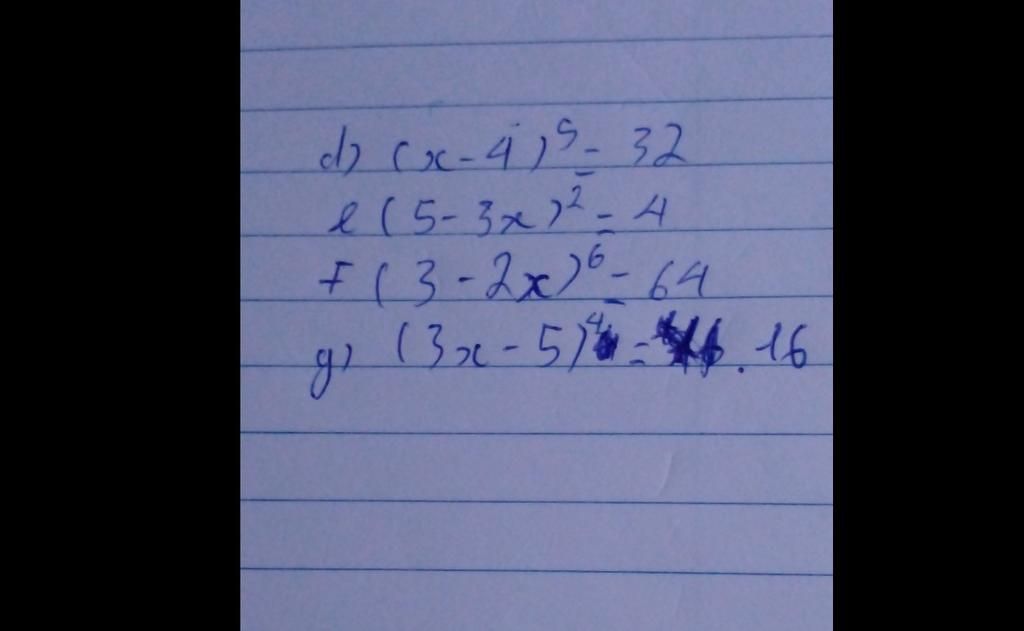 d) (x-4)⁵ = 32
e (5-3x)² = 4
F (3-2x)⁶ = 64
g) (3x-5)⁴ = . 16